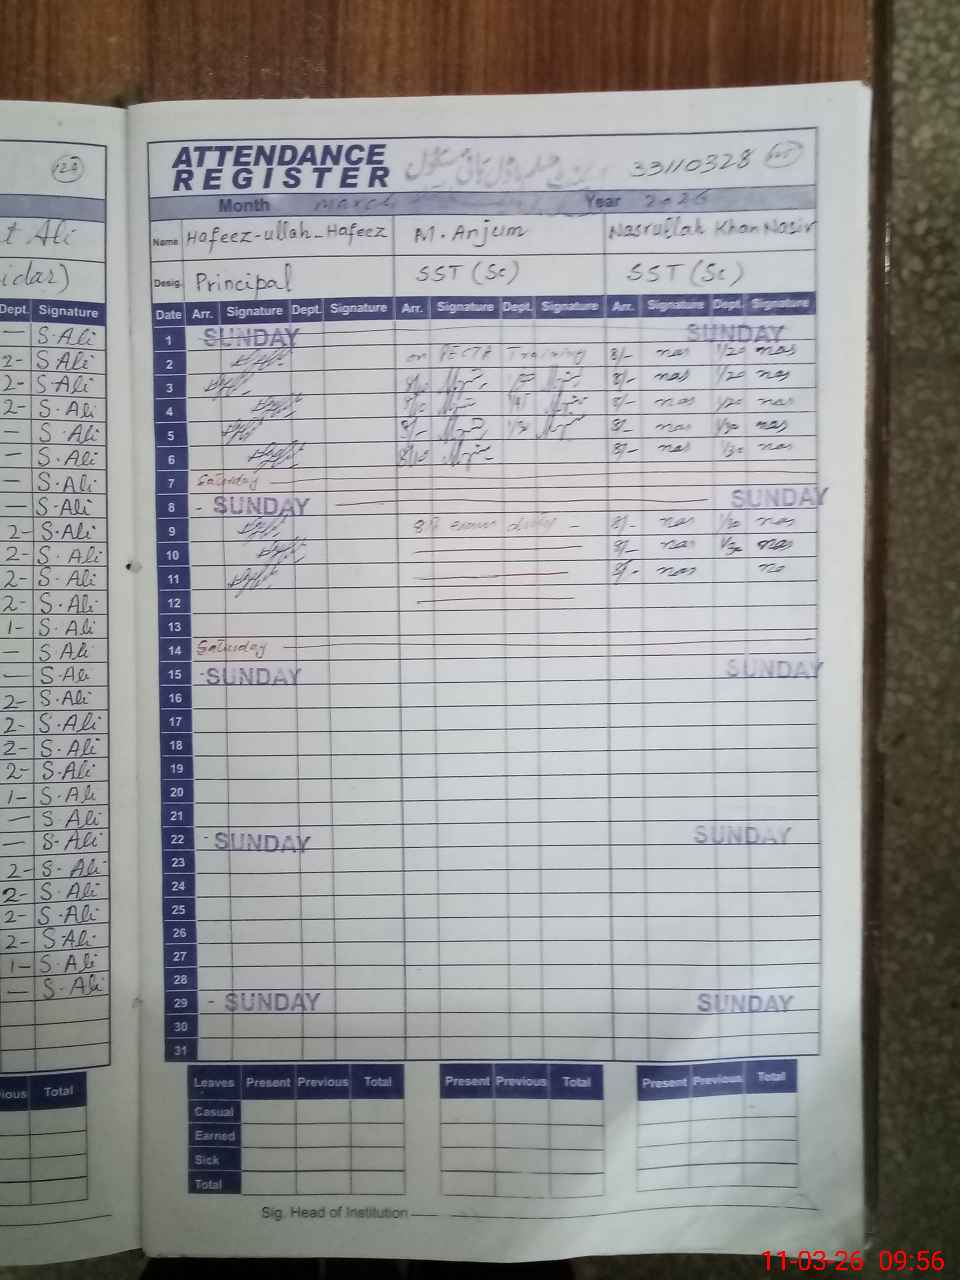 124
ATTENDANCE
REGISTER
33110328
Month March Year 2026
t Ali
Name Hafeez-ullah-Hafeez M. Anjum Nasrullah Khan Nasir
idar)
Desig. Principal SST (Sc) SST (Sc)
Dept. Signature
Date Arr. Signature Dept. Signature Arr. Signature Dept. Signature Arr. Signature Dept. Signature
— S.Ali
1 SUNDAY SUNDAY
2- S Ali
2 on PECTA Training 8/- nas 1/30 nas
2- S.Ali
3 8/- nas 1/30 nas
2- S.Ali
4 8/- nas 1/30 nas
— S.Ali
5 8/- nas 1/30 nas
— S.Ali
6 8/- nas 1/30 nas
— S.Ali
7 Saturday
— S.Ali
8 - SUNDAY SUNDAY
2- S.Ali
9 duty - 8/- nas 1/30 nas
2- S.Ali
10 8/- nas 1/30 nas
2- S.Ali
11 8/- nas
2- S.Ali
12
1- S.Ali
13
— S.Ali
14 Saturday
— S.Ali
15 -SUNDAY SUNDAY
2- S.Ali
16
2- S.Ali
17
2- S.Ali
18
2- S.Ali
19
1- S.Ali
20
— S.Ali
21
— S.Ali
22 - SUNDAY SUNDAY
2- S.Ali
23
2- S.Ali
24
2- S.Ali
25
2- S.Ali
26
1- S.Ali
27
— S.Ali
28
29 - SUNDAY SUNDAY
30
31
ious Total
Leaves Present Previous Total Present Previous Total Present Previous Total
Casual
Earned
Sick
Total
Sig. Head of Institution
11-03-26 09:56